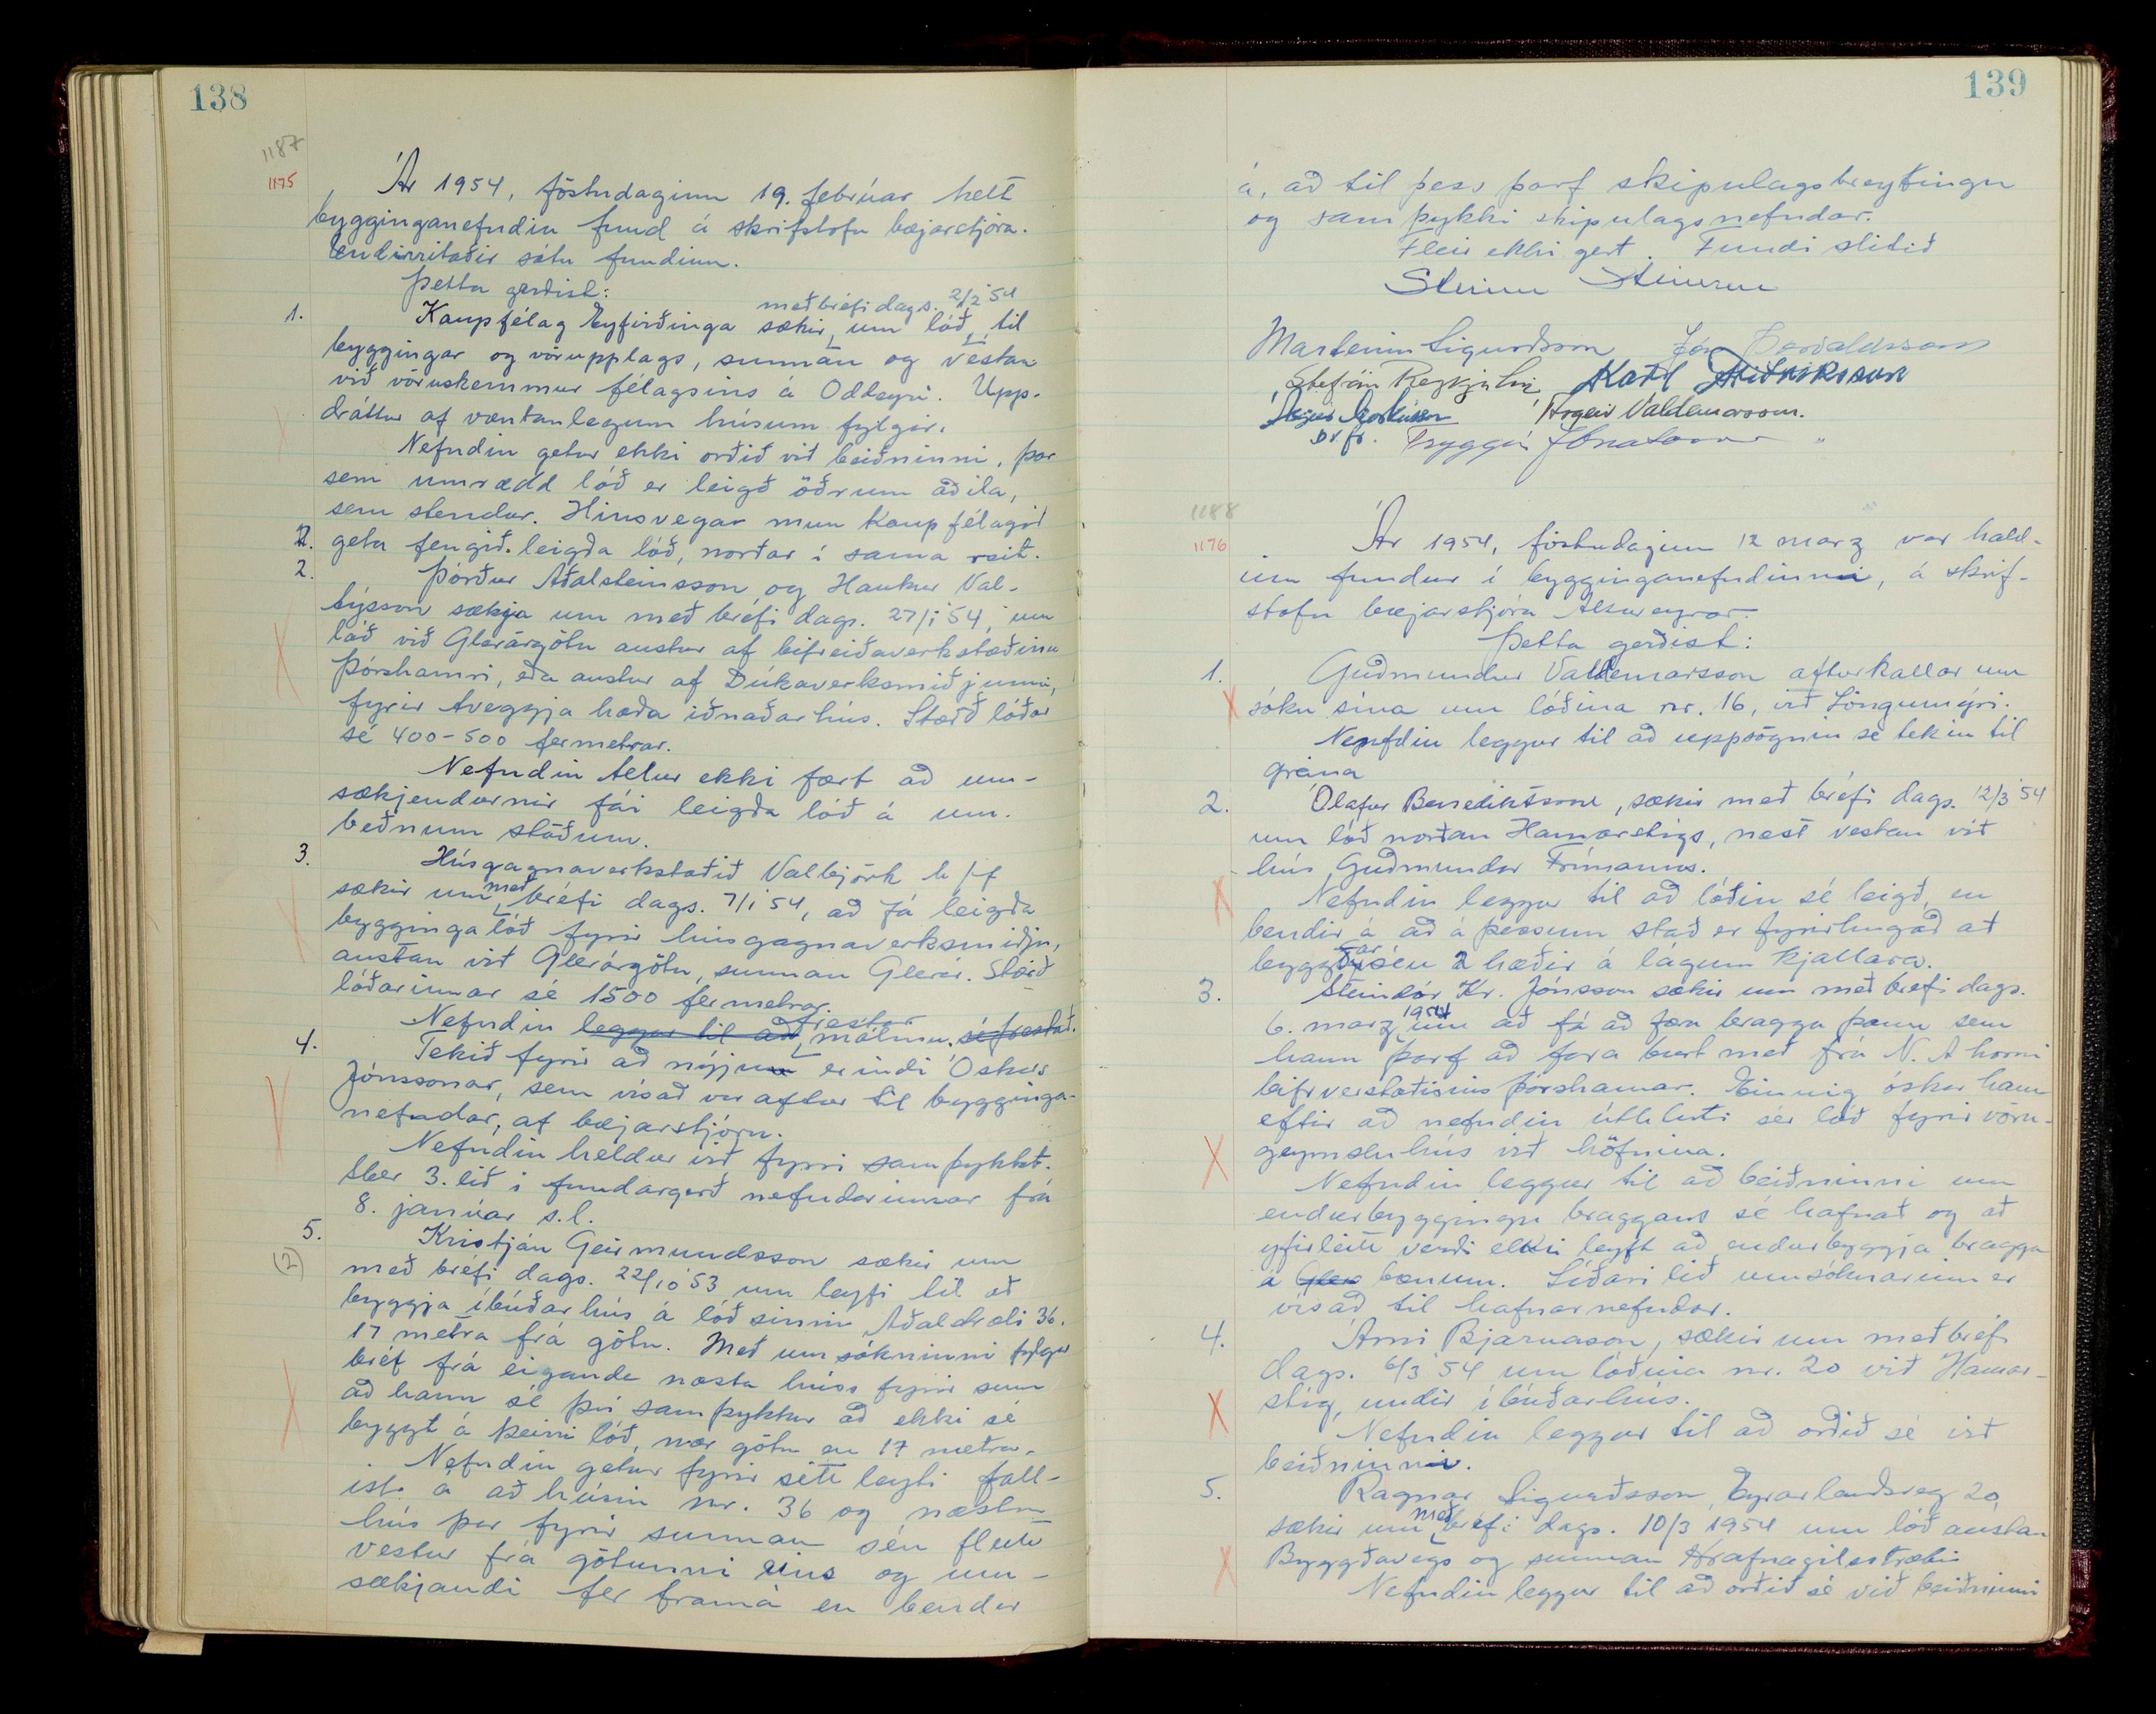 138
1187
1175
Ár 1954, föstudaginn 19. febrúar hélt
bygginganefndin fund á skrifstofu bæjarstjóra.
Undirritaðir sátu fundinn.
Þetta gerðist:
með bréfi dags. 2/2 '54
1. Kaupfélag Eyfirðinga sækir um lóð, til
byggingar og vöruupplags, sunnan og vestan
við vöruskemmur félagsins á Oddeyri. Upp-
dráttur af væntanlegum húsum fylgir.
Nefndin getur ekki orðið við beiðninni, þar
sem umrædd lóð er leigð öðrum aðila,
sem stendur. Hinsvegar mun Kaupfélagið
geta fengið leigða lóð, norðar í sama reit.
2. Þórður Aðalsteinsson og Haukur Val-
týsson sækja um með bréfi dags. 27/1 '54, um
lóð við Glerárgötu austur af bifreiðaverkstæðinu
Þórshamri, eða austur af Dúkaverksmiðjunni,
fyrir tveggja hæða iðnaðarhús. Stærð lóðar
sé 400-500 fermetrar.
Nefndin telur ekki fært að um-
sækjendurnir fái leigða lóð á um-
beðnum stöðum.
3. Húsgagnaverkstæðið Valbjörk h/f
sækir um með bréfi dags. 7/1 54, að fá leigða
byggingalóð fyrir húsgagnaverksmiðju,
austan við Glerárgötu, sunnan Glerár. Stærð
lóðarinnar sé 1500 fermetrar.
frestar
Nefndin leggur til að málinu sé frestað.
4. Tekið fyrir að nýju erindi Óskars
Jónssonar, sem vísað var aftur til bygginga-
nefndar, af bæjarstjórn.
Nefndin heldur við fyrri samþykkt.
Sber 3. lið í fundargerð nefndarinnar frá
8. janúar s.l.
5. Kristján Geirmundsson sækir um
(2)
með bréfi dags. 22/10 '53 um leyfi til að
byggja íbúðarhús á lóð sinni Aðalstræti 36.
17 metra frá götu. Með umsókninni fylgir
bréf frá eiganda næsta húss fyrir sunn
að hann sé því samþykkur að ekki sé
byggt á þeirri lóð, nær götu en 17 metra.
Nefndin getur fyrir sitt leyti fall-
ist á að húsin nr. 36 og næstu
hús þar fyrir sunnan séu flutt
vestur frá götunni eins og um-
sækjandi fer framá en bendir
139
á, að til þess þarf skipulagsbreytingu
og samþykki skipulagsnefndar.
Fleir ekki gert. Fundi slitið
Steinn Steinsen
Marteinn Sigurðsson Jón Þorvaldsson
Stefán Reykjalín Karl Friðriksson
Ásgeir Markússon Þorgeir Valdemarsson.
Tryggvi Jónatansson
1188
1176
Ár 1954, föstudaginn 12 marz var hald-
inn fundur í bygginganefndinni, á skrif-
stofu bæjarstjóra Akureyrar.
Þetta gerðist:
1. Guðmundur Valdemarsson afturkallar um
sókn sína um lóðina nr. 16, við Löngumýri.
Nefndin leggur til að uppsögnin sé tekin til
greina
2. Ólafur Benediktsson, sækir með bréfi dags. 12/3 54
um lóð norðan Hamarstígs, næst vestan við
hús Guðmundar Frímanns.
Nefndin leggur til að lóðin sé leigð, en
bendir á að á þessum stað er fyrirhugað að
byggðar séu 2 hæðir á lágum kjallara.
3. Steindór Kr. Jónsson sækir um með bréfi dags.
6. marz 1954 um að fá að færa bragga þann sem
hann þarf að fara burt með frá N. A horni
bifrverstæðisins Þórshamar. Einnig óskar hann
eftir að nefndin úthluti sér lóð fyrir vöru-
geymsluhús við höfnina.
Nefndin leggur til að beiðninni um
endurbyggingu braggans sé hafnað og að
yfirleitt verði ekki leyft að endurbyggja bragga
á bænum. Síðari lið umsóknarinnar
vísað til hafnarnefndar.
4. Árni Bjarnason, sækir um með bréfi
dags. 6/3 '54 um lóðina nr. 20 við Hamar-
stíg, undir íbúðarhús.
Nefndin leggur til að orðið sé við
beiðninni.
5. Ragnar Sigurðsson, Eyrarlandsveg 20
sækir um með bréfi dags. 10/3 1954 um lóð austan
Byggðavegs og sunnan Hrafnagilsstrætis
Nefndin leggur til að orðið sé við beiðninni